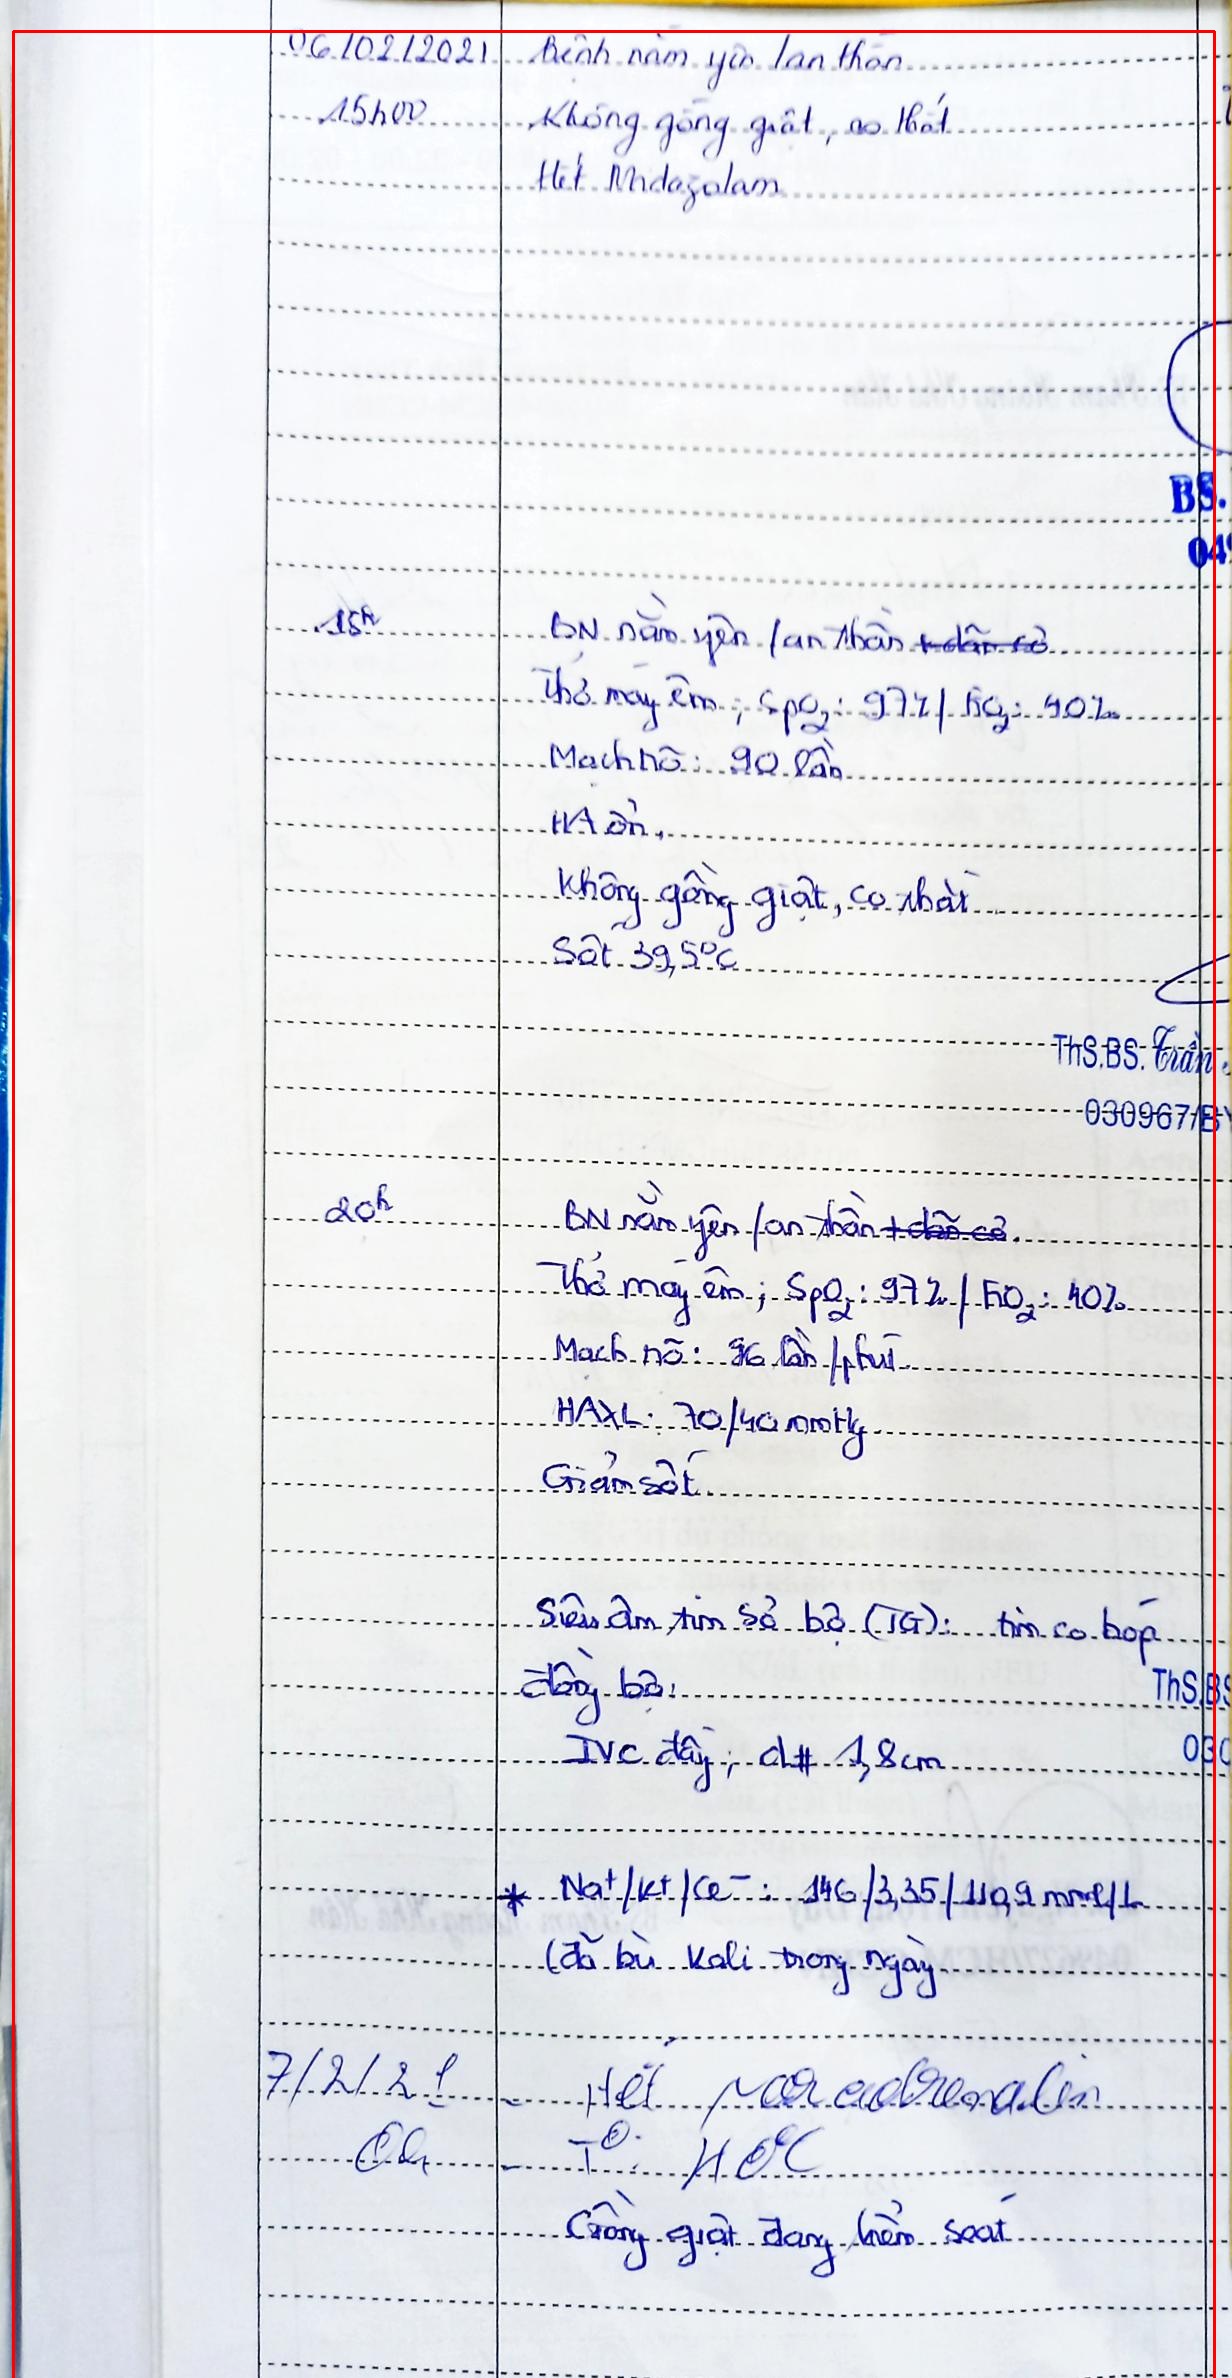 06/02/2021 Bệnh nằm yên / an thần
15h00 Không gồng giật, co thắt
Hết Midazolam
BS.
049
15h BN nằm yên / an thần + dãn cơ
Thở máy êm; SpO2: 97% / FiO2: 40%
Mạch rõ: 90 lần
HA ổn.
Không gồng giật, co thắt
Sốt 39,5°C
ThS.BS. Trần
030967/BY
20h BN nằm yên / an thần + dãn cơ.
Thở máy êm; SpO2: 97% / FiO2: 40%
Mạch rõ: 96 lần/phút
HAXL: 70/40 mmHg
Giảm sốt
Siêu âm tim sơ bộ (TG): tim co bóp
đồng bộ.
ThS.BS
030
IVC đầy, d# 1,8cm
* Na+/K+/Cl-: 146/3,35/110,9 mmol/L
(đã bù Kali trong ngày
7/2/21 - Hết noradrenalin
- T°: 40°C
Gồng giật đang kiểm soát